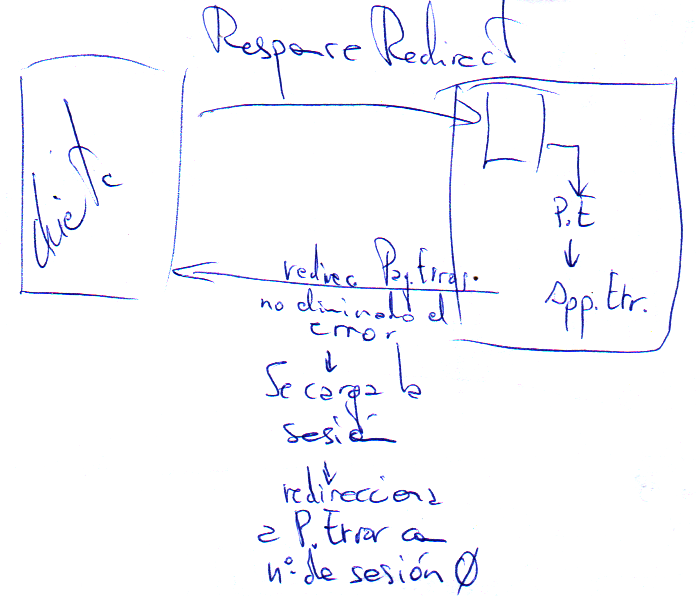 Response Redirect
cliente
P.E
App. Err.
redirec Pag. Error.
no eliminado el
error
Se carga la
sesión
redirecciona
a P. Error con
nº de sesión Ø